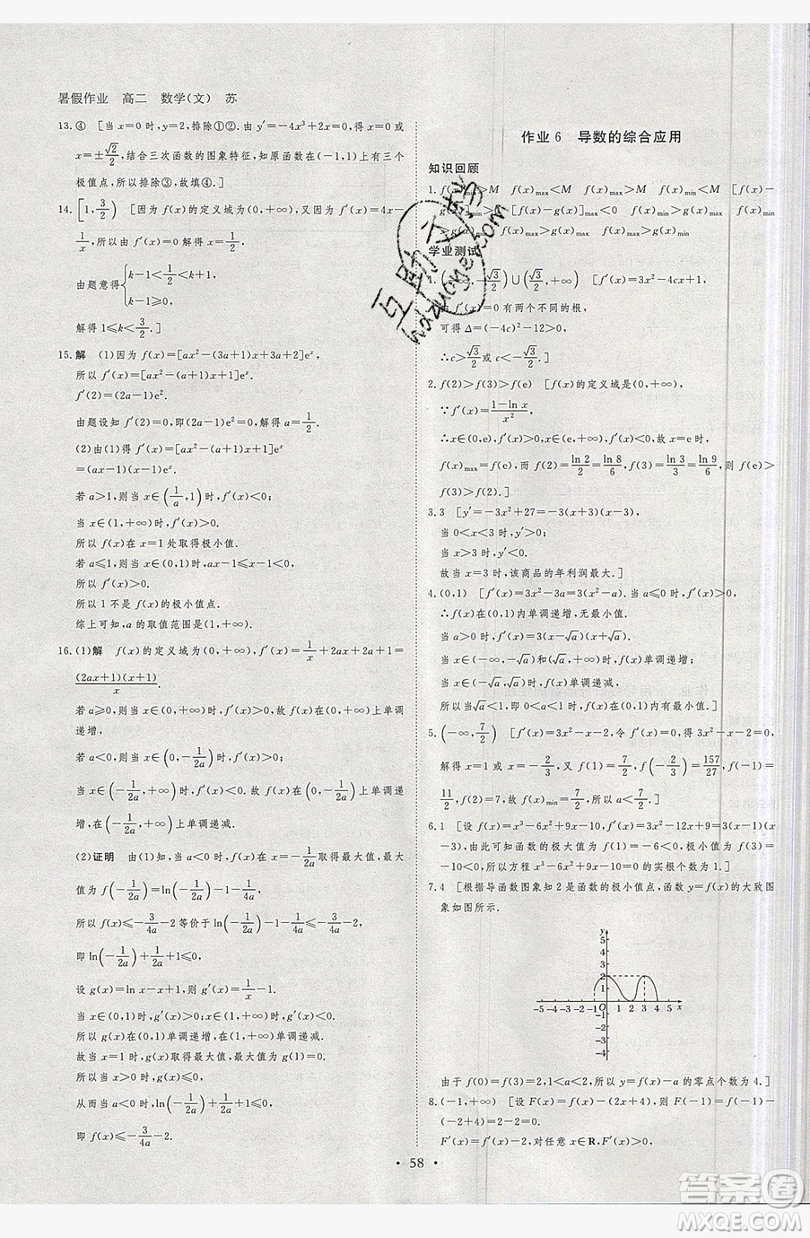 暑假作业　高二　数学(文)　苏
13.④　[当x=0时,y=2,排除①②.由y′=-4x³+2x=0或
x=±√2/2,结合三次函数的图象特征,知原函数在(-1,1)上有三个
极值点,所以排除③,故填④.]
14.[1,3/2)　[因为f(x)的定义域为(0,+∞),又因为f′(x)=4x-
1/x,由f′(x)=0解得x=1/2,
由题意得{k-1<1/2<k+1, k-1≥0,
解得1≤k<3/2.]
15.解　(1)因为f(x)=[ax²-(3a+1)x+3a+2]eˣ,
所以f′(x)=[ax²-(a+1)x+1]eˣ.
f′(2)=(2a-1)e².
由题设知f′(2)=0,即(2a-1)e²=0,解得a=1/2.
(2)由(1)得f′(x)=[ax²-(a+1)x+1]eˣ
=(ax-1)(x-1)eˣ.
若a>1,则当x∈(1/a,1)时,f′(x)<0;
当x∈(1,+∞)时,f′(x)>0.
所以f(x)在x=1处取得极小值.
若a≤1,则当x∈(0,1)时,ax-1≤x-1<0,
所以f′(x)>0.
所以1不是f(x)的极小值点.
综上可知,a的取值范围是(1,+∞).
16.(1)解　f(x)的定义域为(0,+∞),f′(x)=1/x+2ax+2a+1=
(2ax+1)(x+1)/x.
若a≥0,则当x∈(0,+∞)时,f′(x)>0,
故f(x)在(0,+∞)上单调递增.
若a<0,则当x∈(0,-1/2a)时,f′(x)>0;
当x∈(-1/2a,+∞)时,f′(x)<0.故f(x)在(0,-1/2a)上单调递
增,在(-1/2a,+∞)上单调递减.
(2)证明　由(1)知,当a<0时,f(x)在x=-1/2a处取得最大
值,最大值为f(-1/2a)=ln(-1/2a)-1-1/4a.
所以f(x)≤-3/4a-2等价于ln(-1/2a)-1-1/4a≤-3/4a-2,
即ln(-1/2a)+1/2a+1≤0.
设g(x)=ln x-x+1,则g′(x)=1/x-1.
当x∈(0,1)时,g′(x)>0;当x∈(1,+∞)时,g′(x)<0,
所以g(x)在(0,1)上单调递增,在(1,+∞)上单调递减.
故当x=1时,g(x)取得最大值,最大值为g(1)=0.
所以当x>0时,g(x)≤0.
从而当a<0时,ln(-1/2a)+1/2a+1≤0,
即f(x)≤-3/4a-2.
作业6　导数的综合应用
知识回顾
1.f(x)min>M　f(x)max>M　f(x)max<M　f(x)min<M　[f(x)-
g(x)]min>0
学业测试
1.
由f′(x)=0有两个不同的根,
可得Δ=(-4c)²-12>0,
∴c>√3/2或c<-√3/2.]
2.f(2)>f(3)>f(e)　[f(x)的定义域是(0,+∞),
∵f′(x)=(1-ln x)/x²,
∴x∈(0,e),f′(x)>0;x∈(e,+∞),f′(x)<0,故x=e时,
f(x)max=f(e),而f(2)=ln 2/2=ln 8/6,f(3)=ln 3/3=ln 9/6,则f(e)>
f(3)>f(2).]
3.3　[y′=-3x²+27=-3(x+3)(x-3),
当0<x<3时,y′>0;
当x>3时,y′<0.
故当x=3时,该商品的年利润最大.]
4.(0,1)　[f′(x)=3x²-3a=3(x²-a),当a≤0时,f′(x)≥0,
∴f(x)在(0,1)内单调递增,无最小值.
当a>0时,f′(x)=3(x-√a)(x+√a).
当x∈(-∞,-√a)和(√a,+∞)时,f(x)单调递增;
当x∈(-√a,√a)时,f(x)单调递减,
所以当√a<1,即0<a<1时,f(x)在(0,1)内有最小值.]
5.(-∞,7/2)　[f′(x)=3x²-x-2,令f′(x)=0,得3x²-x-2=0,
解得x=1或x=-2/3,又f(1)=7/2,f(-2/3)=157/27,f(-1)=
11/2,f(2)=7,故f(x)min=7/2,∴a<7/2.]
6.1　[设f(x)=x³-6x²+9x-10,f′(x)=3x²-12x+9=3(x-1)
(x-3),由此可知函数的极大值为f(1)=-6<0,极小值为f(3)=
-10<0,所以方程x³-6x²+9x-10=0的实根个数为1.]
7.4　[根据导函数图象知2是函数的极小值点,函数y=f(x)的大致图
象如图所示.
y
5
4
3
2
1
-5 -4 -3 -2 -1 O 1 2 3 4 5 x
-1
-2
-3
-4
由于f(0)=f(3)=2,1<a<2,所以y=f(x)-a的零点个数为4.]
8.(-1,+∞)　[设F(x)=f(x)-(2x+4),则F(-1)=f(-1)
-(-2+4)=2-2=0,
F′(x)=f′(x)-2,对任意x∈R,F′(x)=f′(x)-2>0,
• 58 •
互助文档
huzuoye.com
答案卷
MXQE.COM